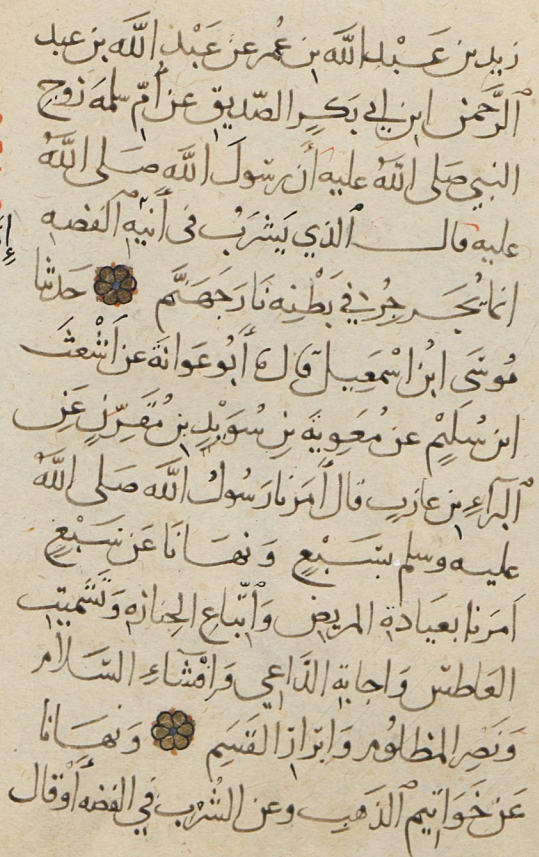 زيد بن عَبْد اللَّه بن عُمر عن عَبْد اللَّه بن عبد
الرَّحمن ابن ابي بَكرٍ الصّديق عن أُمّ سلمَة زوج
النبي صَلى اللَّهُ عليه أن رسُولَ اللَّه صَلى اللَّهُ
عليه قال الذي يَشرَبُ في أَنِيَةِ الفضه
انما يُجَرجِرُ في بَطْنِه نَارَ جَهَنَّم حَدثنا
مُوسَى ابْنُ اسْمَعِيل قال نا أَبُو عَوانَة عن اَشْعثَ
ابن سُلَيْم عن مُعَوِيةَ بنِ سُوَيْدِ بنِ مُقَرِّنٍ عَنِ
البَرَآءِ بن عَازبٍ قال أَمَرَنا رَسُولُ اللَّه صَلى اللَّهُ
عليه وسلم بسَبْعٍ وَنهَانَا عَن سَبْعٍ
اَمَرنا بعيَادةِ المريض وَاتّباع الجِنازه وَتَشميتِ
العَاطس وَاجابةِ الدَّاعي وَافْشَآءِ السَّلام
وَنَصرِ المظلُوم وَابرَازِ القَسَم وَنهَانا
عَن خَوَاتِيم الذهبِ وعن الشُرْب في الفضه أَوْ قال